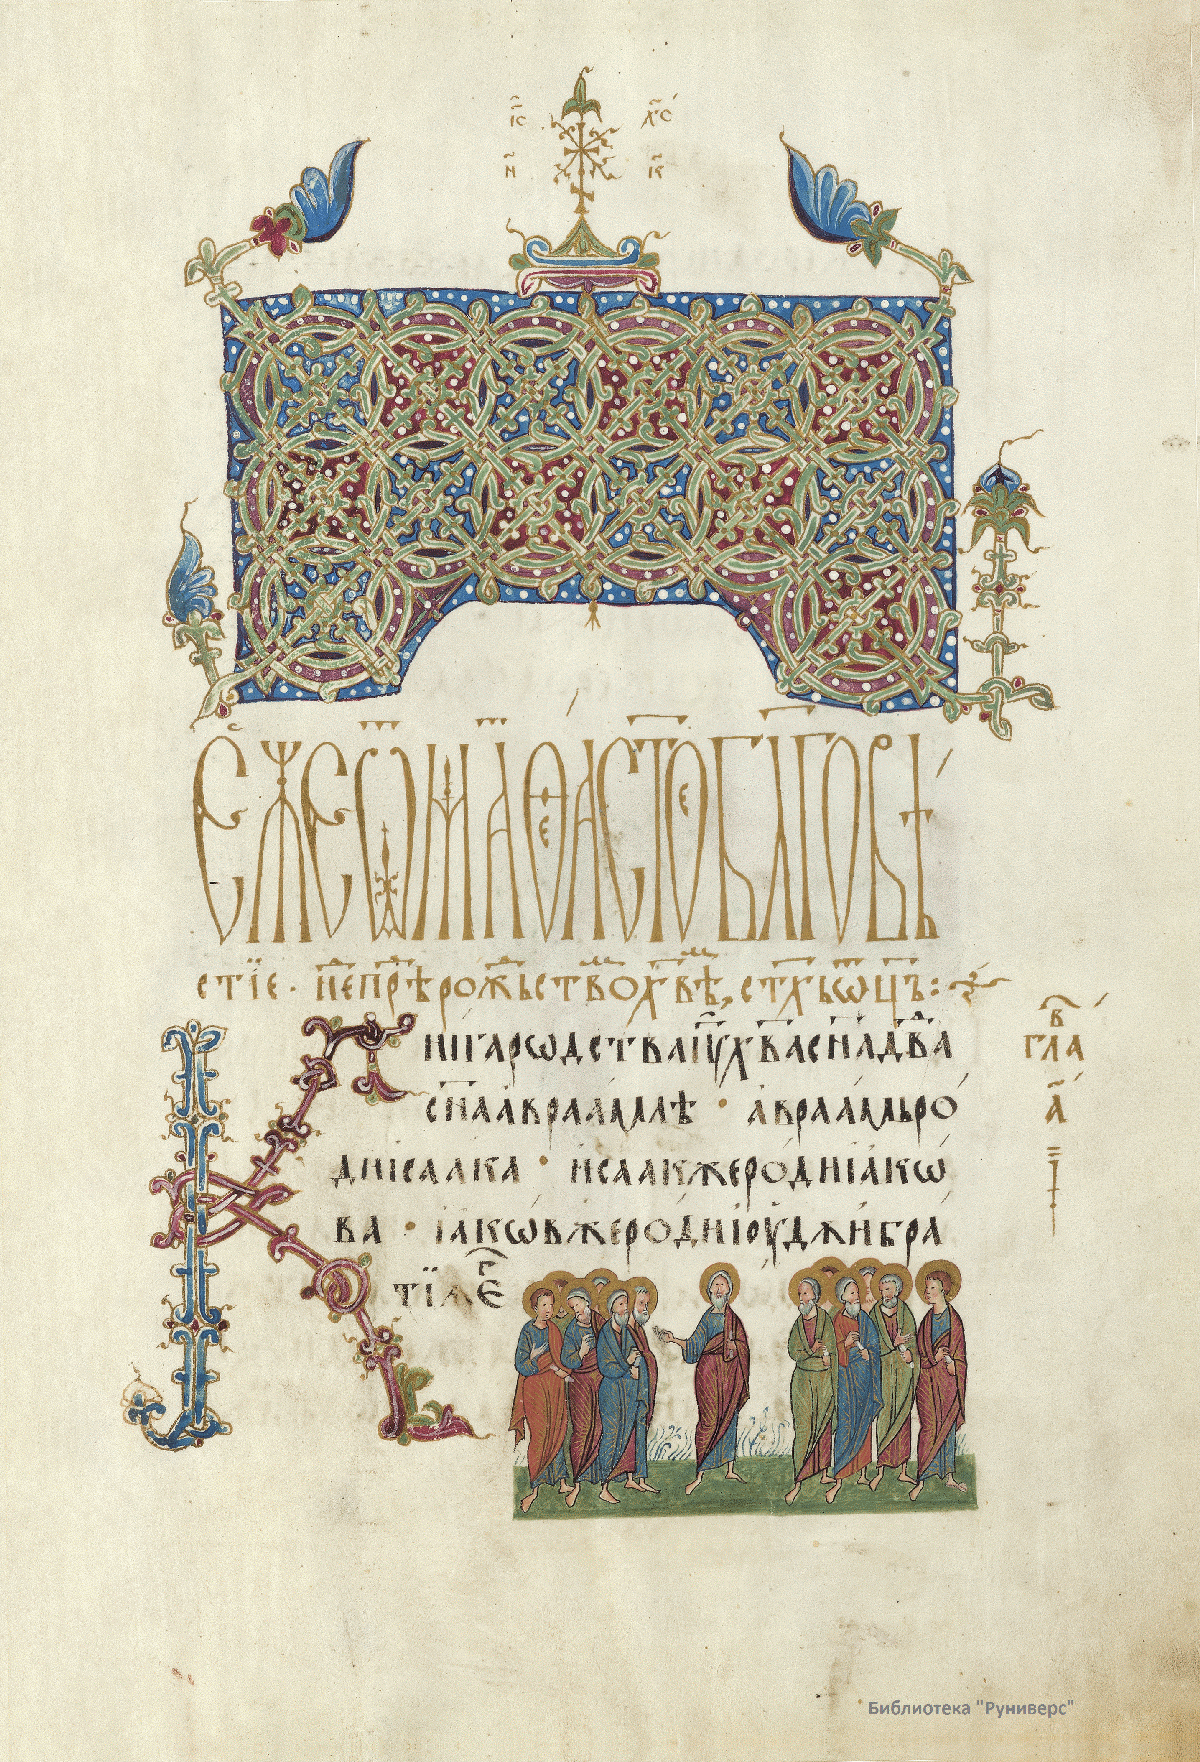 І҃С Х҃С
Н҃ К҃
ЄЖЕ Ѿ МАѲЕА СТОЕ БЛГОВѢ
СТЇЕ · НЕ ПРѢ РОЖЬСТВО ХВѢ, СТХЬ ѠЦЪ :
КНІГА РѠДСТВА ІѴ ХВА СНА ДВА
СНА АВРААМЛѢ · АВРААМЬ РО
ДИ ІСААКА · ИСААК ЖЕ РОДИ ІАКѠ
ВА · ІАКѠВ ЖЕ РОДИ ІОУДѪ И БРА
ТЇѦ ЕГ
В
ГЛА
А҃
Библиотека "Руниверс"